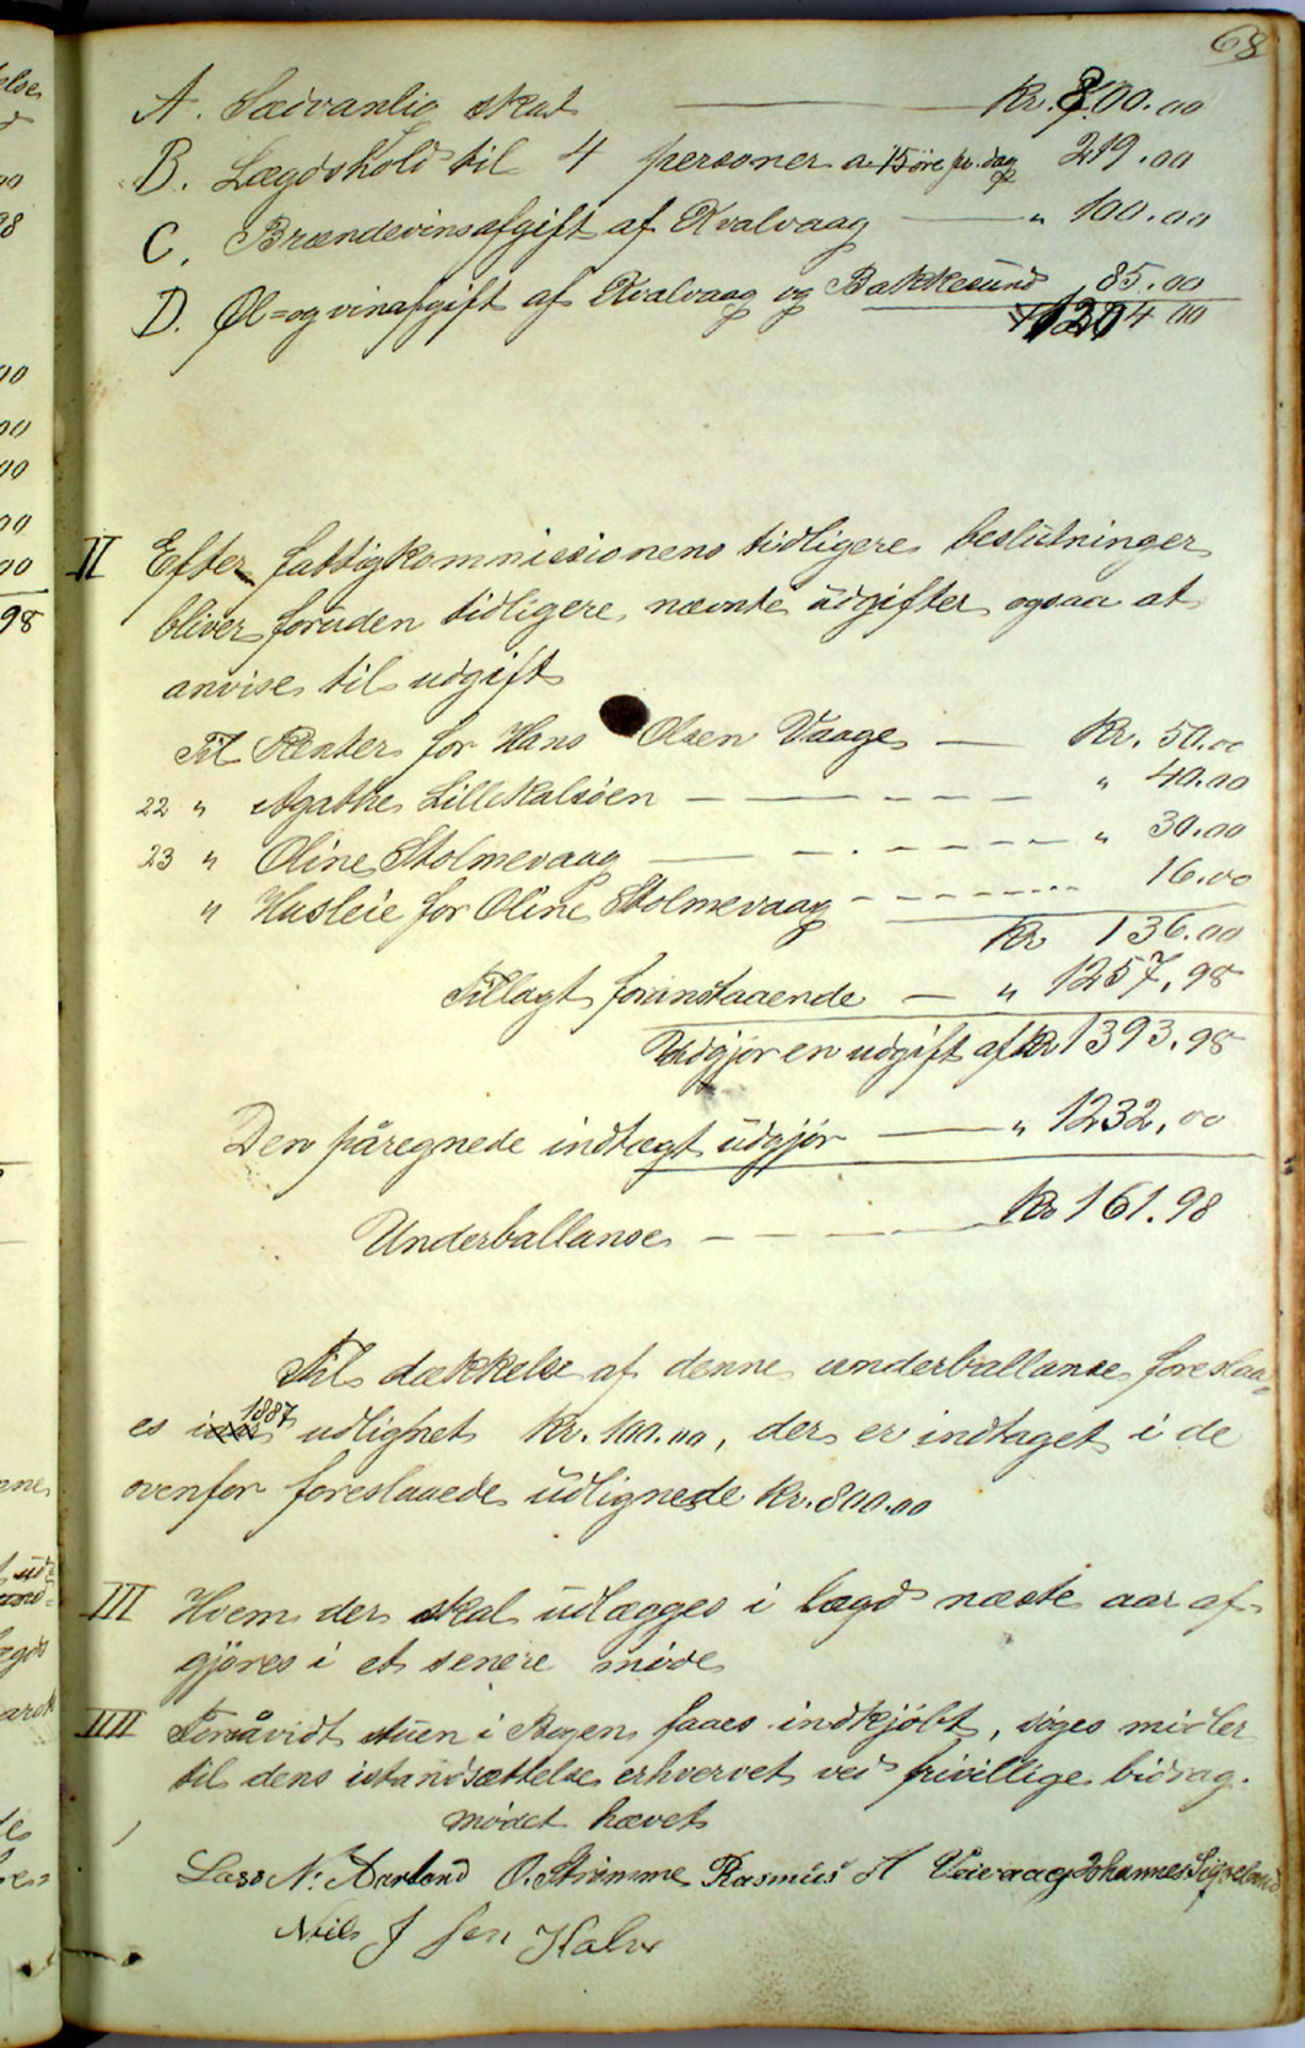 68
A. Sædvanlig skat — Kr. 800.00
B. Lægdshold til 4 personer a. 15 øre pr. dag 219.00
C. Brændevinsafgift af Kvalvaag — " 100.00
D. Øl= og vinafgift af Kvalvaag og Bakkesund 85.00
1204 00
II Efter fattigkommissionens tidligere beslutninger
bliver foruden tidligere nævnte udgifter ogsaa at
anvise til udgift
Til Renter for Hans Olsen Vaage — Kr. 50.00
22 " Agathe Lillekalsøen — — — — — " 40.00
23 " Oline Stolmevaag — — . — — — — " 30.00
" Husleie for Oline Stolmevaag - - - - - - - 16.00
Kr 136.00
Tillagt foranstaaende — " 1257,98
Udgjør en udgift af Kr 1393.98
Den påregnede indtægt udgjør — " 1232,00
Underballanse — — — — Kr 161.98
Til dækkelse af denne underballanse foreslaa=
es 1887 udlignet Kr. 100.00, der er indtaget i de
ovenfor foreslaaede udlignede Kr. 800.00
III Hvem der skal udlægges i lægd næste aar af-
gjöres i et senere møde
IIII Forsåvidt stuen i Bogen faaes indkjøbt, søges midler
til dens istandsættelse erhvervet ved frivillige bidrag.
mødet hævet
Lasse N. Aarland O. Strømme Rasmus H Veivaag Johannes Sigveland
Niels J sen Kalve